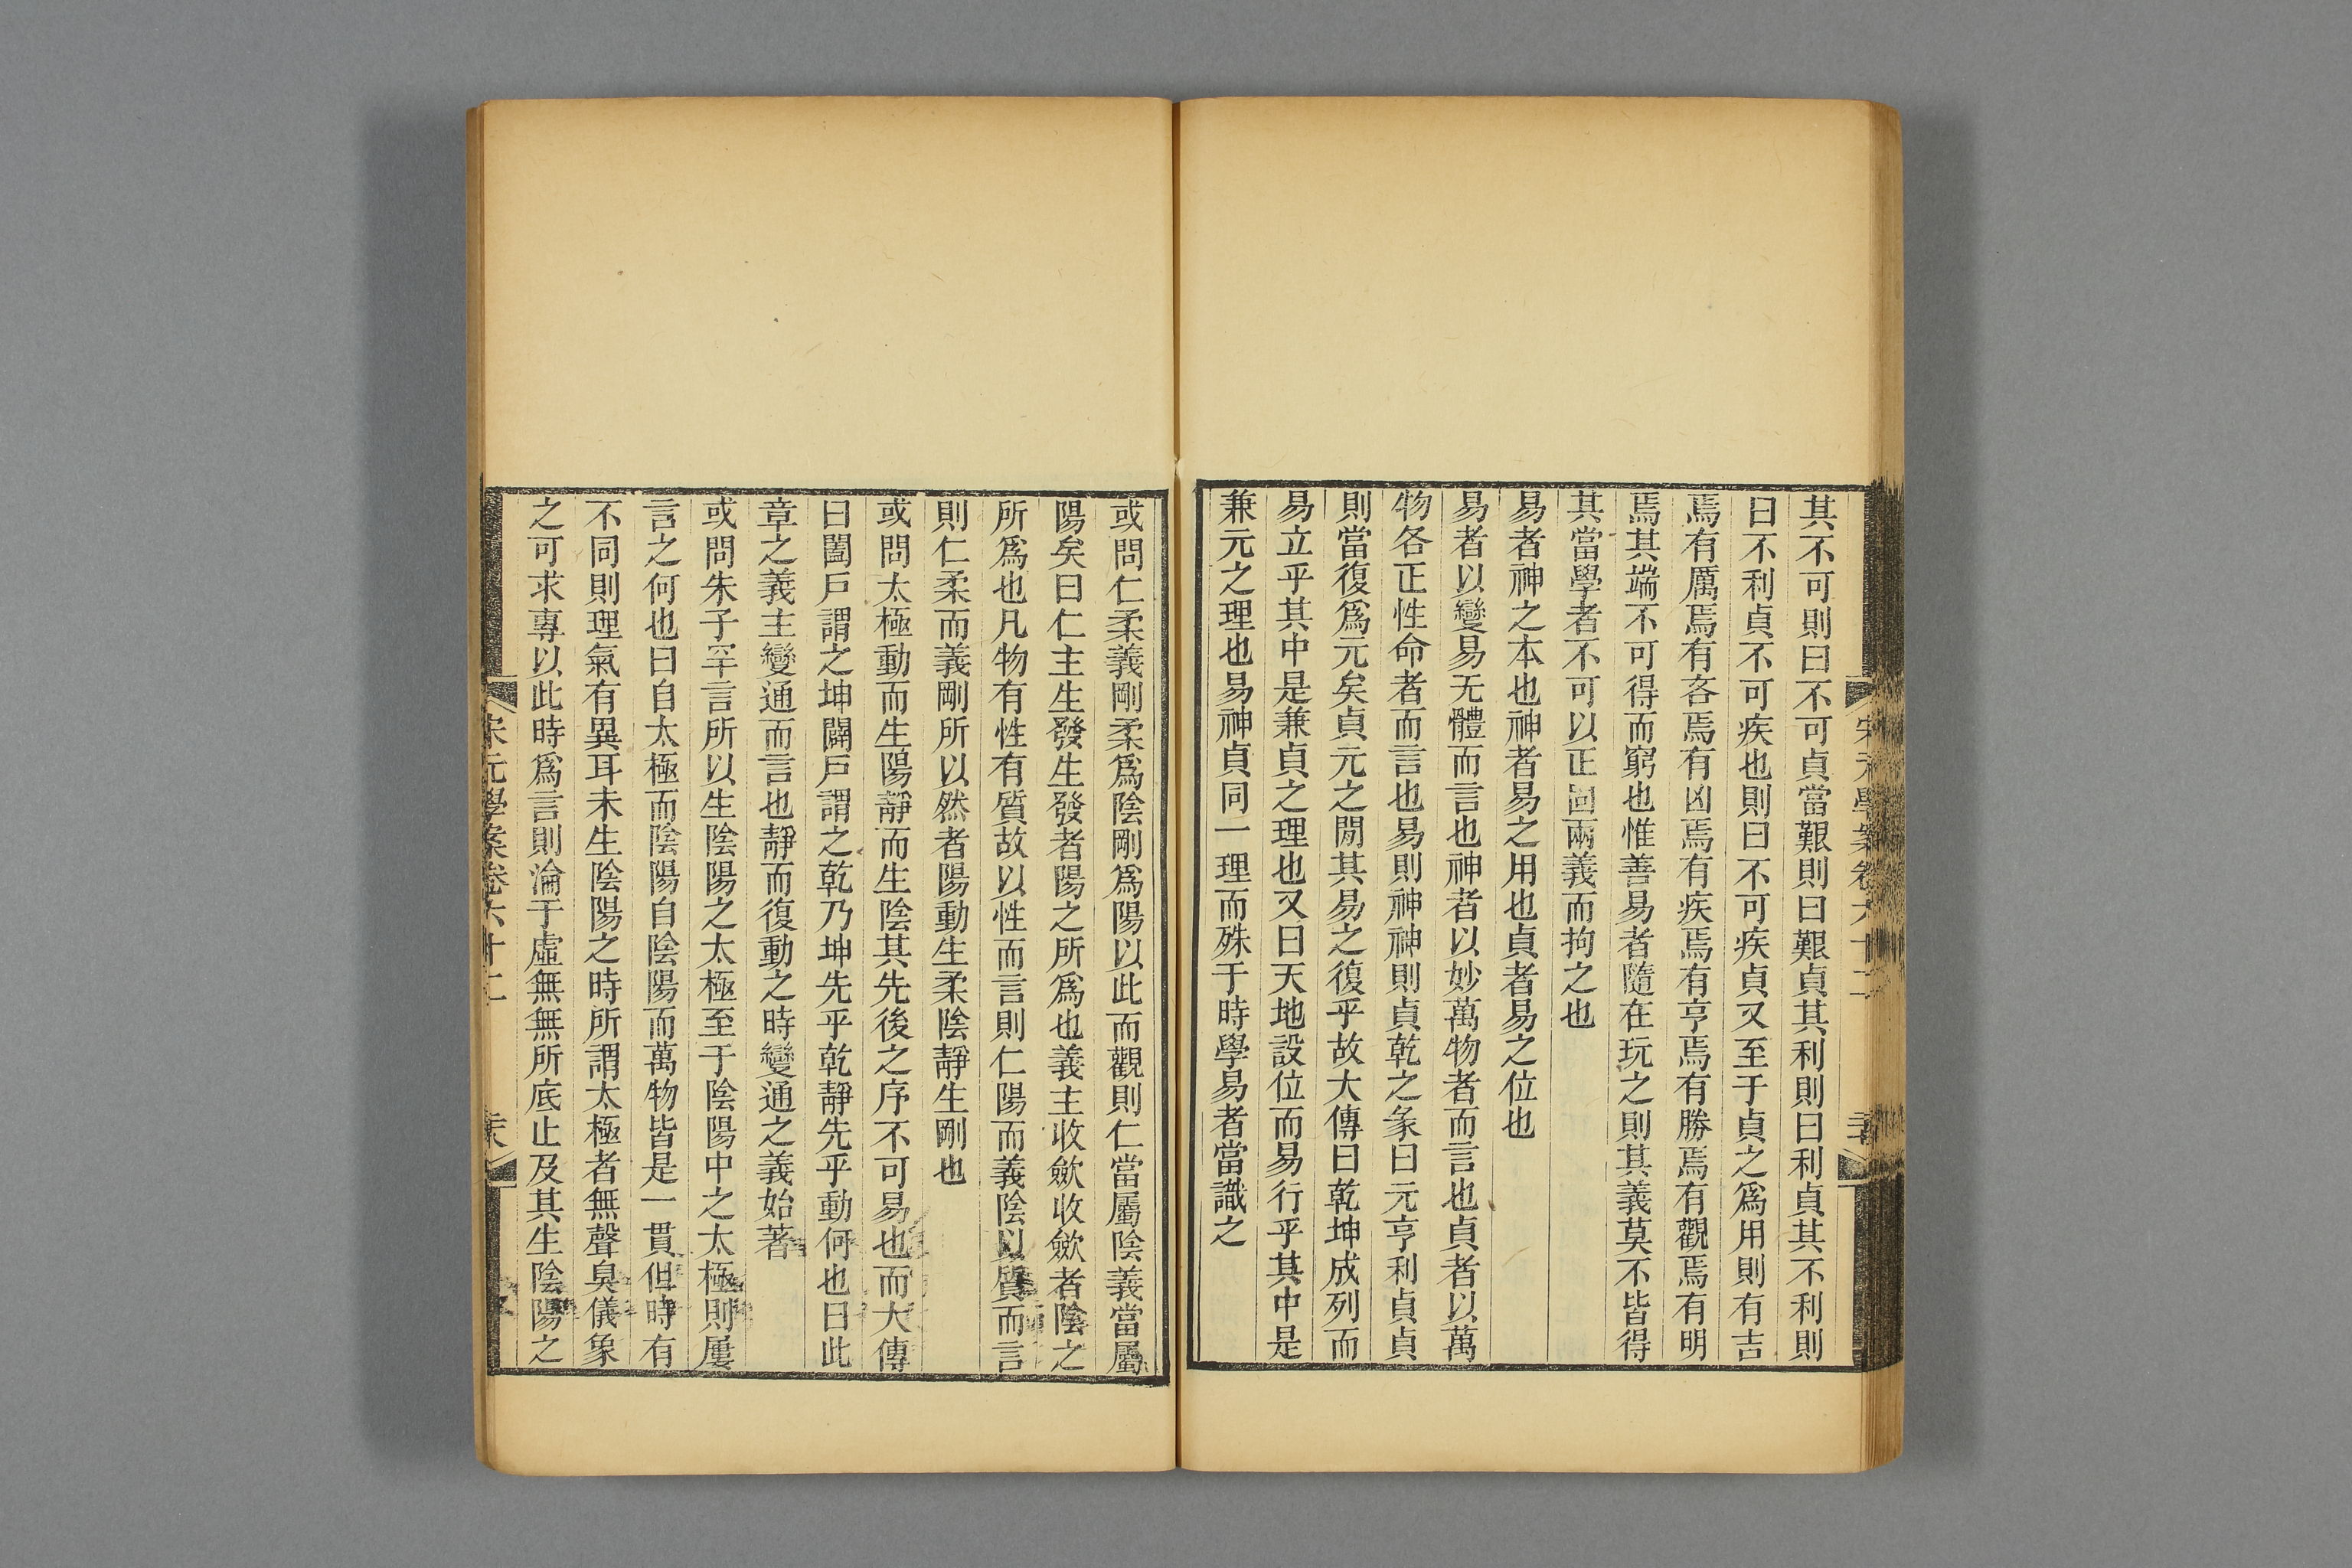 其不可則曰不可貞當艱則曰艱貞其利則曰利貞其不利則
曰不利貞不可疾也則曰不可疾貞又至于貞之爲用則有吉
焉有厲焉有吝焉有凶焉有疾焉有亨焉有勝焉有觀焉有明
焉其端不可得而窮也惟善易者隨在玩之則其義莫不皆得
其當學者不可以正固兩義而拘之也
易者神之本也神者易之用也貞者易之位也
易者以變易无體而言也神者以妙萬物者而言也貞者以萬
物各正性命者而言也易則神神則貞乾之彖曰元亨利貞貞
則當復爲元矣貞元之閒其易之復乎故大傳曰乾坤成列而
易立乎其中是兼貞之理也又曰天地設位而易行乎其中是
兼元之理也易神貞同一理而殊于時學易者當識之
或問仁柔義剛柔爲陰剛爲陽以此而觀則仁當屬陰義當屬
陽矣曰仁主生發生發者陽之所爲也義主收歛收歛者陰之
所爲也凡物有性有質故以性而言則仁陽而義陰以質而言
則仁柔而義剛所以然者陽動生柔陰靜生剛也
或問太極動而生陽靜而生陰其先後之序不可易也而大傳
曰闔戶謂之坤闢戶謂之乾乃坤先乎乾靜先乎動何也曰此
章之義主變通而言也靜而復動之時變通之義始著
或問朱子罕言所以生陰陽之太極至于陰陽中之太極則屢
言之何也曰自太極而陰陽自陰陽而萬物皆是一貫但時有
不同則理氣有異耳未生陰陽之時所謂太極者無聲臭儀象
之可求專以此時爲言則淪于虛無無所底止及其生陰陽之
宋元學案卷六十二